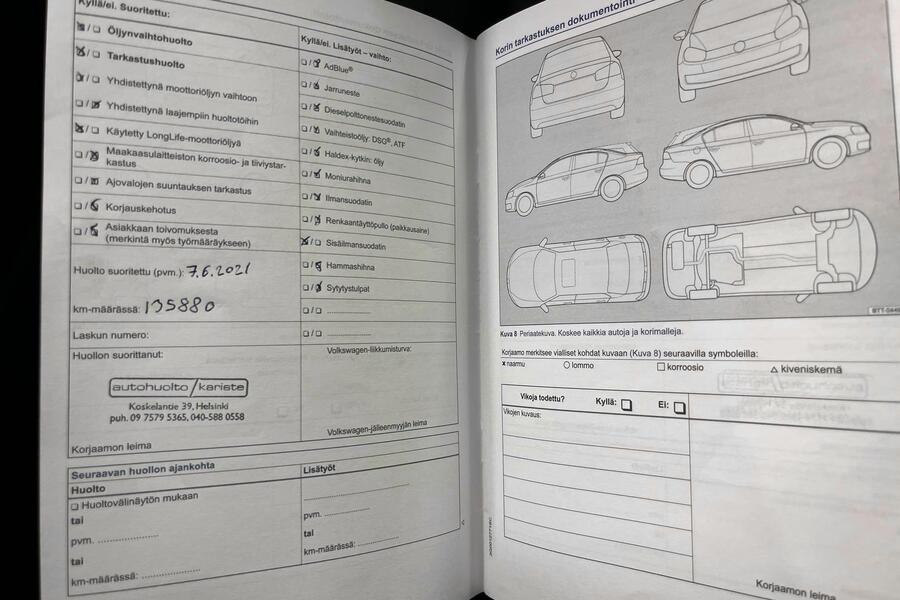 Kyllä/ei. Suoritettu:
☒/☐ Öljynvaihtohuolto
☒/☐ Tarkastushuolto
☒/☐ Yhdistettynä moottoriöljyn vaihtoon
☐/☒ Yhdistettynä laajempiin huoltotöihin
☒/☐ Käytetty LongLife-moottoriöljyä
☐/☒ Maakaasulaitteiston korroosio- ja tiiviystar-
kastus
☐/☒ Ajovalojen suuntauksen tarkastus
☐/☒ Korjauskehotus
☐/☒ Asiakkaan toivomuksesta
(merkintä myös työmääräykseen)
Huolto suoritettu (pvm.): 7.6.2021
km-määrässä: 135880
Laskun numero:
Huollon suorittanut:
autohuolto/kariste
Koskelantie 39, Helsinki
puh. 09 7579 5365, 040-588 0558
Korjaamon leima
Kyllä/ei. Lisätyöt – vaihto:
☐/☒ AdBlue®
☐/☒ Jarruneste
☐/☒ Dieselpolttonestesuodatin
☐/☒ Vaihteistoöljy: DSG®, ATF
☐/☒ Haldex-kytkin: öljy
☐/☒ Moniurahihna
☐/☒ Ilmansuodatin
☐/☒ Renkaantäyttöpullo (paikkausaine)
☒/☐ Sisäilmansuodatin
☐/☒ Hammashihna
☐/☒ Sytytystulpat
☐/☐ ....................
☐/☐ ....................
Volkswagen-liikkumisturva:
Volkswagen-jälleenmyyjän leima
Seuraavan huollon ajankohta
Huolto
☐ Huoltovälinäytön mukaan
tai
pvm. ....................
tai
km-määrässä: ....................
Lisätyöt
....................
pvm. ....................
tai
km-määrässä: ....................
Korin tarkastuksen dokumentointi
Kuva 8 Periaatekuva. Koskee kaikkia autoja ja korimalleja.
Korjaamo merkitsee vialliset kohdat kuvaan (Kuva 8) seuraavilla symboleilla:
x naarmu ○ lommo □ korroosio △ kiveniskemä
Vikoja todettu? Kyllä: ☐ Ei: ☐
Vikojen kuvaus:
Korjaamon leima